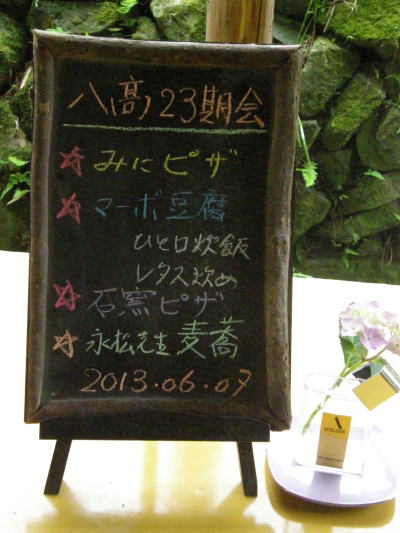 八高23期会
みにピザ
マーボ豆腐
ひと口炊飯
レタス炊め
石窯ピザ
永松先生麦蕎
2013.06.07